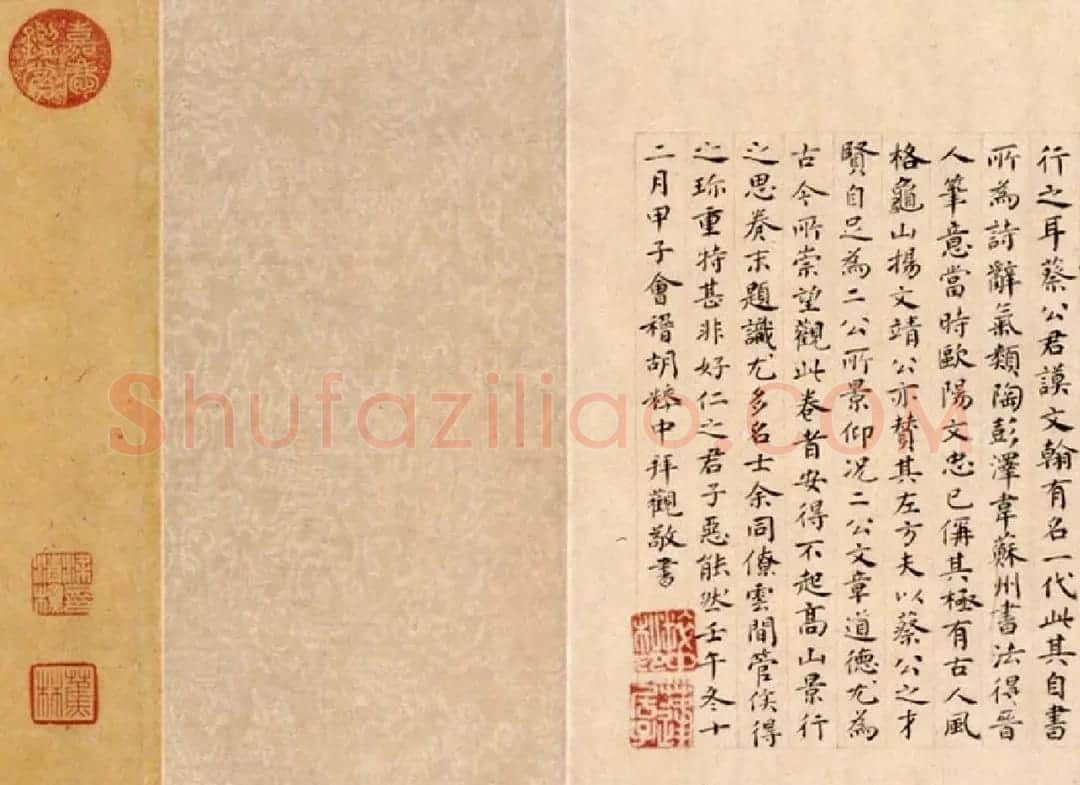 行之耳蔡公君謨文翰有名一代此其自書
所為詩辭氣類陶彭澤韋蘇州書法得晉
人筆意當時歐陽文忠已稱其極有古人風
格龜山揚文靖公亦贊其左方夫以蔡公之才
賢自足為二公所景仰况二公文章道德尤為
古今所崇望觀此卷者安得不起高山景行
之思卷末題識尤多名士余同僚雲間管侯得
之珎重特甚非好仁之君子惡能然壬午冬十
二月甲子會稽胡粹中拜觀敬書
Shufaziliao.COM
蕉林